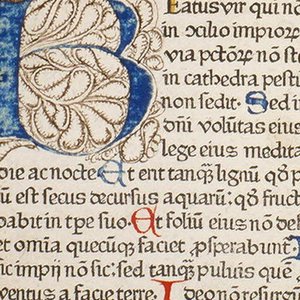 Beatus vir qui nō
in ɔsilio impioꝝ
in via pctōꝝ nō st
in cathedra pesti
non sedit. Sed i
dn̄i volūtas eius
lege eius medita
die ac nocte Et erit tanqȝ lignū qđ p
ū est secus decursus aquarū: qđ fruct
dabit in tp̄e suo. Et foliū eius nō de
et omia quecūqȝ faciet ꝓsperabunt
sic impij nō sic: sed tanqȝ puluis quē
ventus a facie terre. Ideo nō resurgū